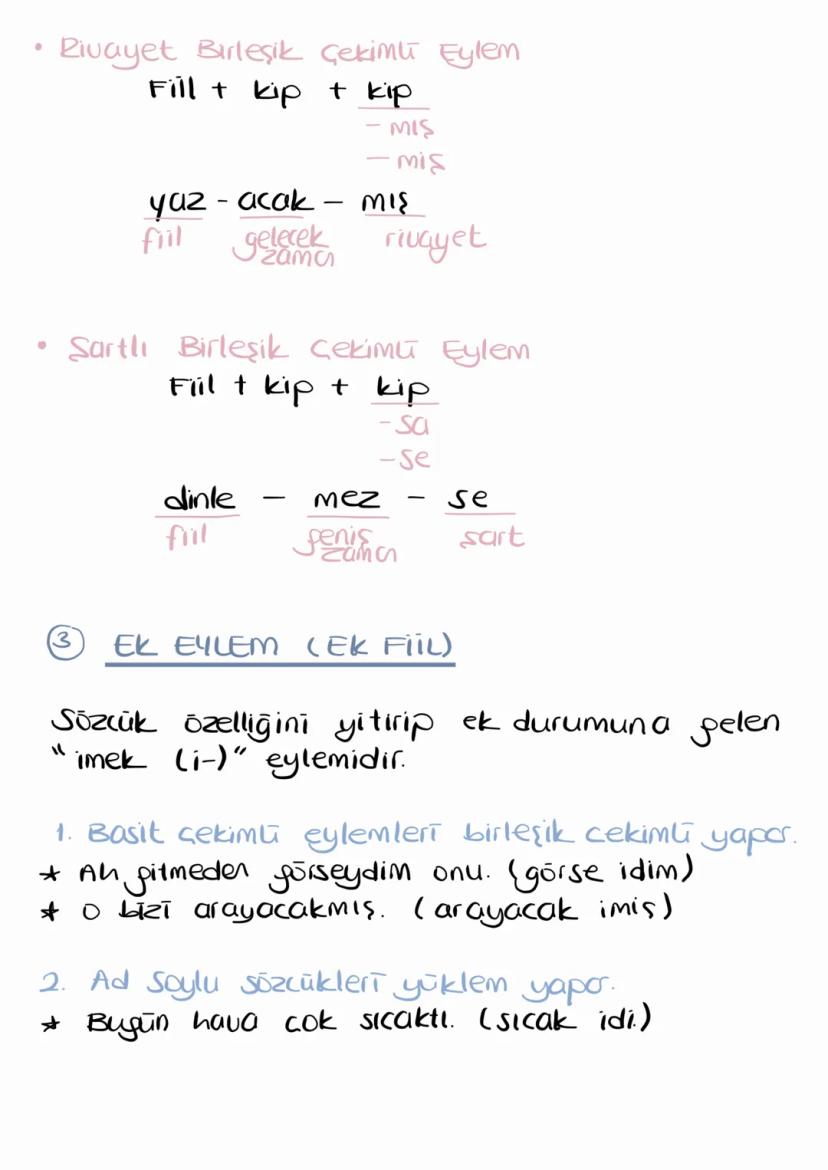 • Rivayet Birleşik Çekimli Eylem
Fiil + kip + kip
- mış
- miş
yaz - acak - mış
fiil gelecek zaman rivayet
• Şartlı Birleşik Çekimli Eylem
Fiil + kip + kip
- sa
- se
dinle - mez - se
fiil geniş zaman şart
③ EK EYLEM (EK FİİL)
Sözcük özelliğini yitirip ek durumuna gelen
"imek (i-)" eylemidir.
1. Basit çekimli eylemleri birleşik çekimli yapar.
* Ah gitmeden görseydim onu. (görse idim)
* O bizi arayacakmış. (arayacak imiş)
2. Ad Soylu sözcükleri yüklem yapar.
* Bugün hava çok sıcaktı. (sıcak idi.)